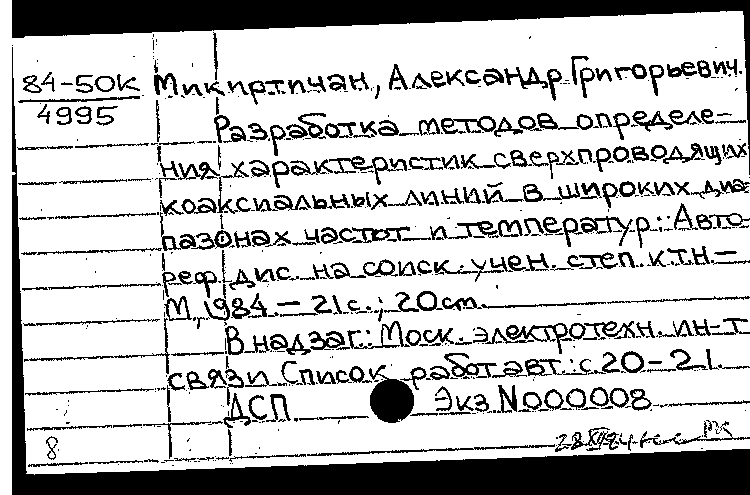 84-50К Микиртичан, Александр Григорьевич.
4995
Разработка методов определе-
ния характеристик сверхпроводящих
коаксиальных линий в широких диа
пазонах частот и температур: Авто
реф. дис. на соиск. учен. степ. к.т.н. —
М, 1984. — 21 с.; 20 cm.
В надзаг: Моск. электротехн. ин-т
связи Список работ авт.: с. 20-21.
ДСП Экз N000008
8